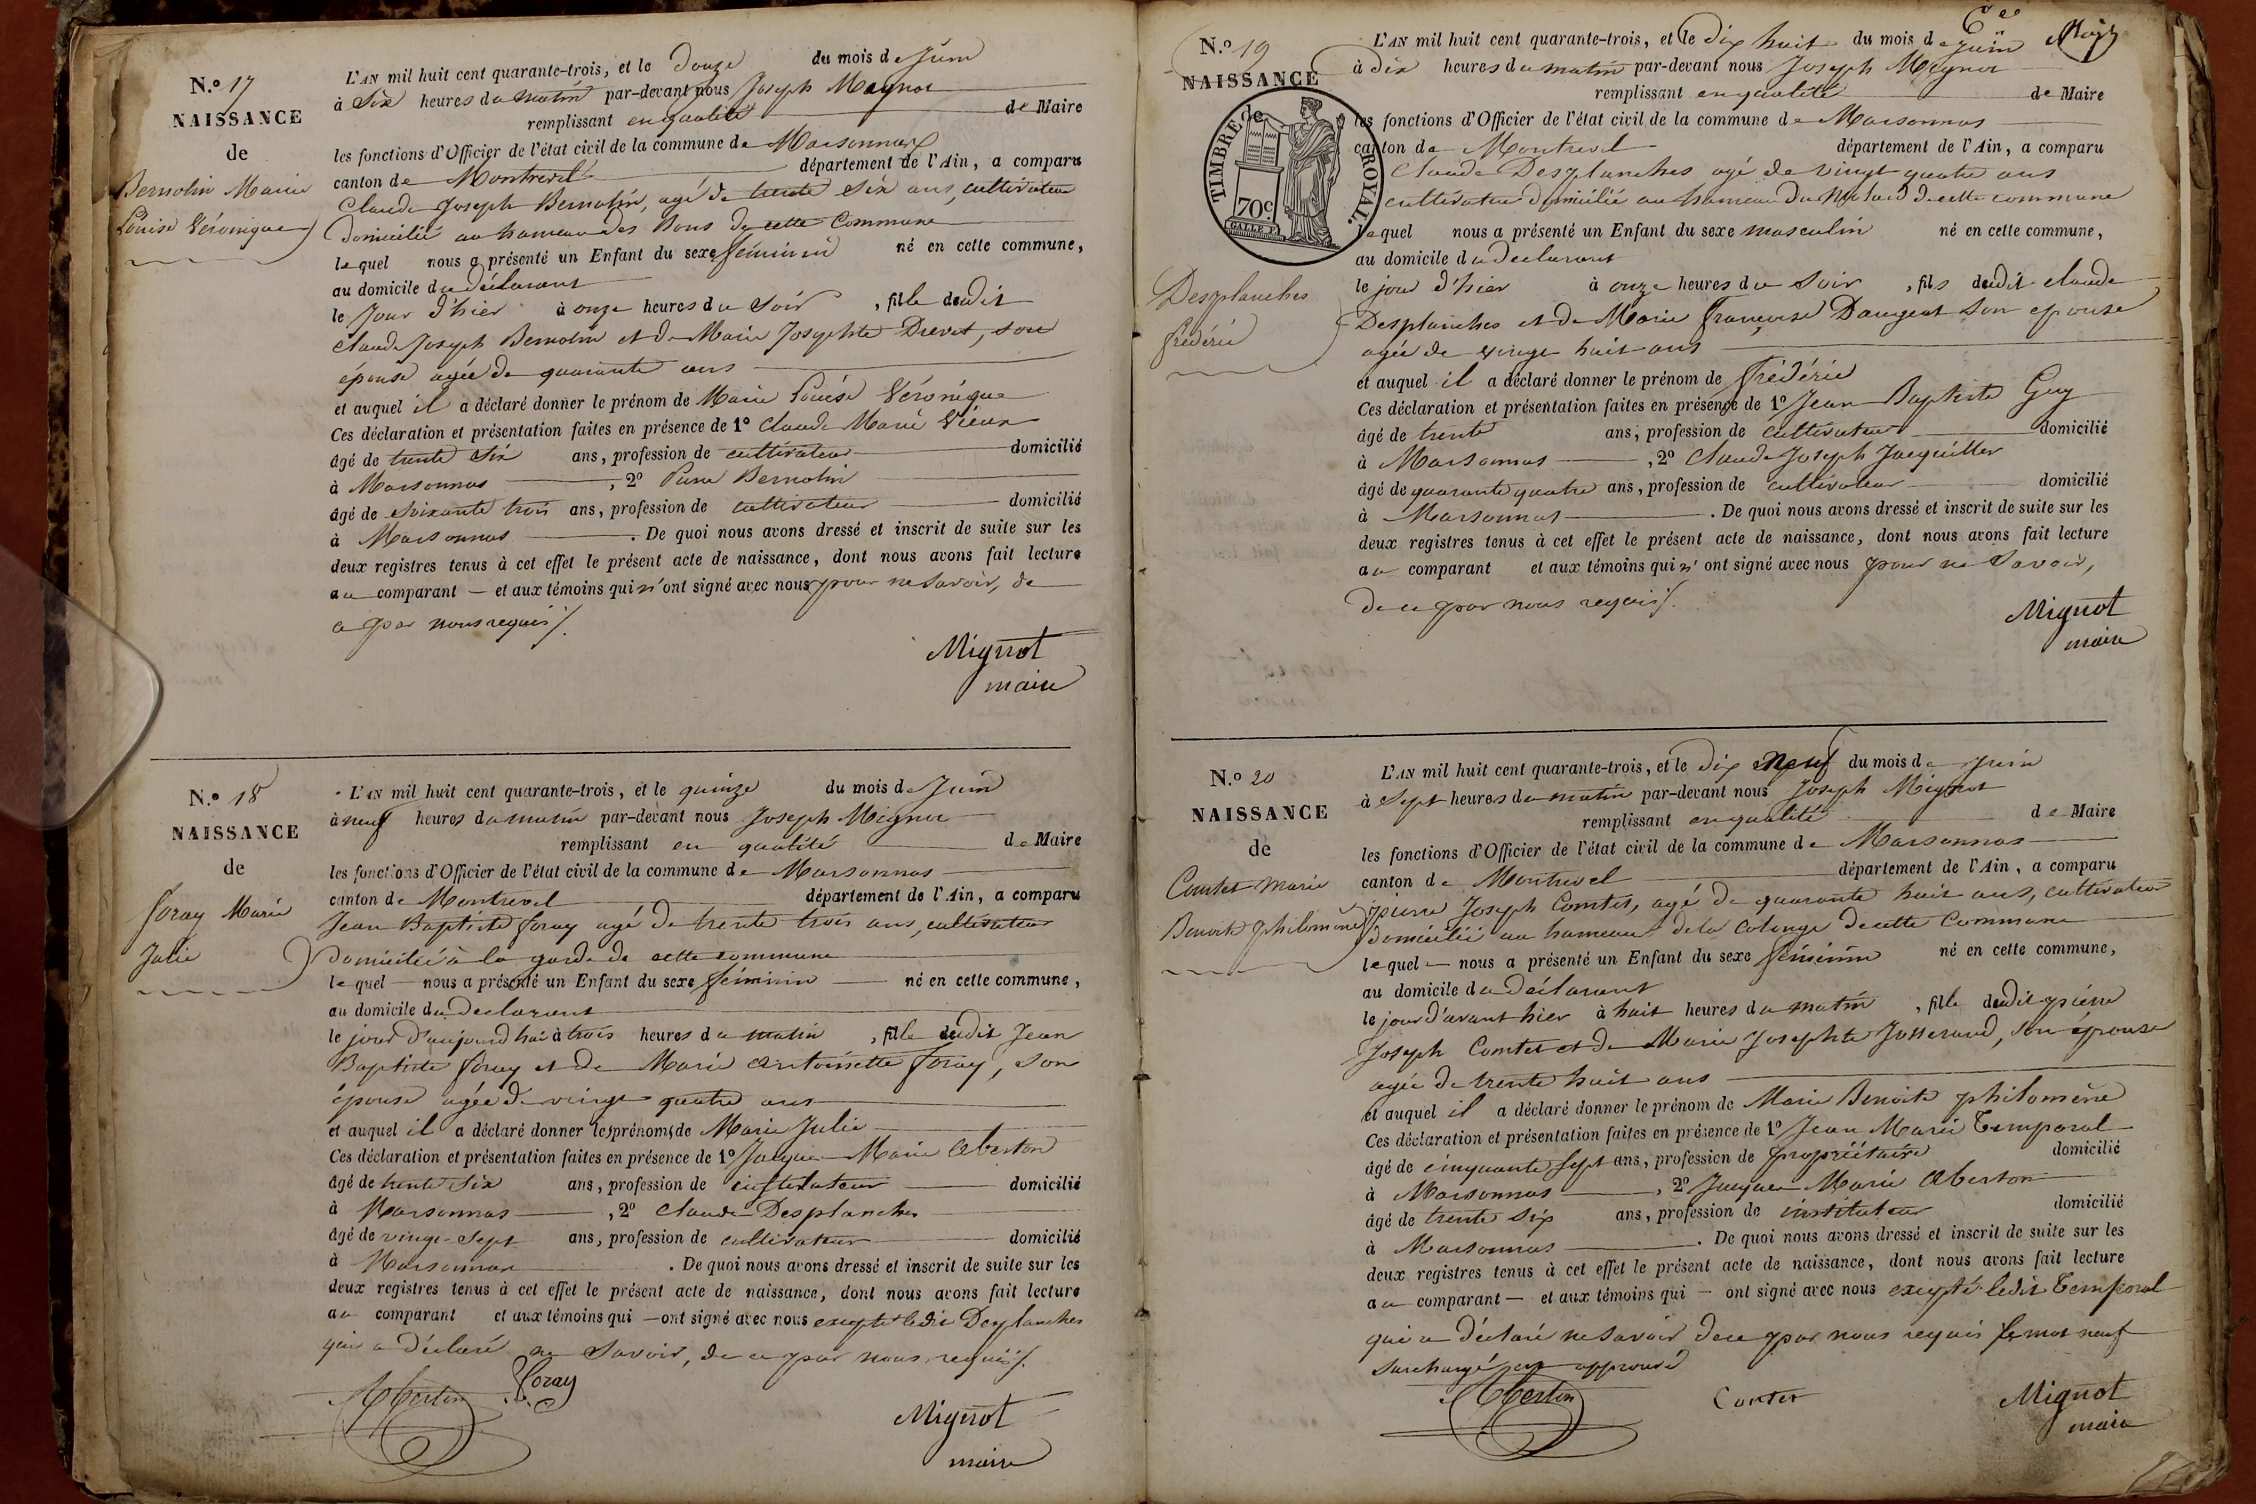 N.º 17
NAISSANCE
de
Bernolin Marie
Louise Véronique
L'AN mil huit cent quarante-trois, et le douze du mois de Juin
à Six heures du matin par-devant nous Joseph Mignot
remplissant en qualité de Maire
les fonctions d'Officier de l'état civil de la commune de Marsonnas
canton de Montrevel département de l'Ain, a comparu
Claude Joseph Bernolin, agé de trente six ans, cultivateur
Domicilié au hameau des Bons de cette Commune
lequel nous a présenté un Enfant du sexe féminin né en cette commune,
au domicile du déclarant
le Jour d'hier à onze heures du Soir, fille dudit
Claude Joseph Bernolin et de Marie Josephte Drevet, son
épouse agée de quarante ans
et auquel il a déclaré donner le prénom de Marie Louise Véronique
Ces déclaration et présentation faites en présence de 1º Claude Marie Vieux
âgé de trente Six ans, profession de cultivateur domicilié
à Marsonnas, 2º Bernolin
âgé de soixante trois ans, profession de cultivateur domicilié
à Marsonnas. De quoi nous avons dressé et inscrit de suite sur les
deux registres tenus à cet effet le présent acte de naissance, dont nous avons fait lecture
au comparant — et aux témoins qui n'ont signé avec nous pour ne Savoir, de
ce par nous requis/.
Mignot
maire
N.º 18
NAISSANCE
de
foray Marie
Julie
L'AN mil huit cent quarante-trois, et le quinze du mois de Juin
à neuf heures du matin par-devant nous Joseph Mignot
remplissant en qualité de Maire
les fonctions d'Officier de l'état civil de la commune de Marsonnas
canton de Montrevel département de l'Ain, a comparu
Jean Baptiste foray agé de trente trois ans, cultivateur
Domicilié à la garde de cette commune
lequel — nous a présenté un Enfant du sexe féminin — né en cette commune,
au domicile du Declarant
le jour d'aujourd'hui à trois heures du matin, fille dudit Jean
Baptiste foray et de Marie antoinette foray, son
épouse agée de vingt quatre ans
et auquel il a déclaré donner les prénoms de Marie Julie
Ces déclaration et présentation faites en présence de 1º Jacques Marie Oberton
âgé de trente Six ans, profession de instituteur domicilié
à Marsonnas, 2º Claude Desplanches
âgé de vingt-Sept ans, profession de cultivateur domicilié
à Marsonnas. De quoi nous avons dressé et inscrit de suite sur les
deux registres tenus à cet effet le présent acte de naissance, dont nous avons fait lecture
au comparant et aux témoins qui — ont signé avec nous excepté ledit Desplanches
qui a déclaré ne Savoir, de ce par nous requis/.
Oberton foray
Mignot
maire
N.º 19
NAISSANCE
de
TIMBRE ROYAL.
70c
Desplanches
frédéric
L'AN mil huit cent quarante-trois, et le dix huit du mois de Juin
à dix heures du matin par-devant nous Joseph Mignot
remplissant en qualité de Maire
les fonctions d'Officier de l'état civil de la commune de Marsonnas
canton de Montrevel département de l'Ain, a comparu
Claude Desplanches agé de vingt quatre ans
cultivateur Domicilié au hameau du de cette commune
lequel nous a présenté un Enfant du sexe masculin né en cette commune,
au domicile du declarant
le jour d'hier à onze heures du Soir, fils dudit claude
Desplanches et de Marie françoise Dangeat Son epouse
agée de vingt huit ans
et auquel il a déclaré donner le prénom de frédéric
Ces déclaration et présentation faites en présence de 1º Jean Baptiste Guy
âgé de trente ans, profession de cultivateur domicilié
à Marsonnas, 2º Claude Joseph Jacquiller
âgé de quarante quatre ans, profession de cultivateur domicilié
à Marsonnas. De quoi nous avons dressé et inscrit de suite sur les
deux registres tenus à cet effet le présent acte de naissance, dont nous avons fait lecture
au comparant et aux témoins qui n'ont signé avec nous pour ne Savoir,
de ce par nous requis/.
Mignot
maire
N.º 20
NAISSANCE
de
Comtet marie
Benoite philomène
L'AN mil huit cent quarante-trois, et le dix neuf du mois de Juin
à Sept heures du matin par-devant nous Joseph Mignot
remplissant en qualité de Maire
les fonctions d'Officier de l'état civil de la commune de Marsonnas
canton de Montrevel département de l'Ain, a comparu
pierre Joseph Comtet, agé de quarante huit ans, cultivateur
domicilié au hameau de la Colonge de cette Commune
lequel — nous a présenté un Enfant du sexe féminin né en cette commune,
au domicile du Déclarant
le jour d'avant hier à huit heures du matin, fille dudit pierre
Joseph Comtet et de Marie Josephte Josserand, Son épouse
agée de trente huit ans
et auquel il a déclaré donner le prénom de Marie Benoite philomène
Ces déclaration et présentation faites en présence de 1º Jean Marie Temporal
âgé de cinquante Sept ans, profession de propriétaire domicilié
à Marsonnas, 2º Jacques Marie Oberton
âgé de trente Six ans, profession de instituteur domicilié
à Marsonnas. De quoi nous avons dressé et inscrit de suite sur les
deux registres tenus à cet effet le présent acte de naissance, dont nous avons fait lecture
au comparant — et aux témoins qui — ont signé avec nous excepté ledit Temporal
qui a Déclaré ne Savoir de ce par nous requis le mot neuf
Surchargé est approuvé
Oberton Comtet
Mignot
maire